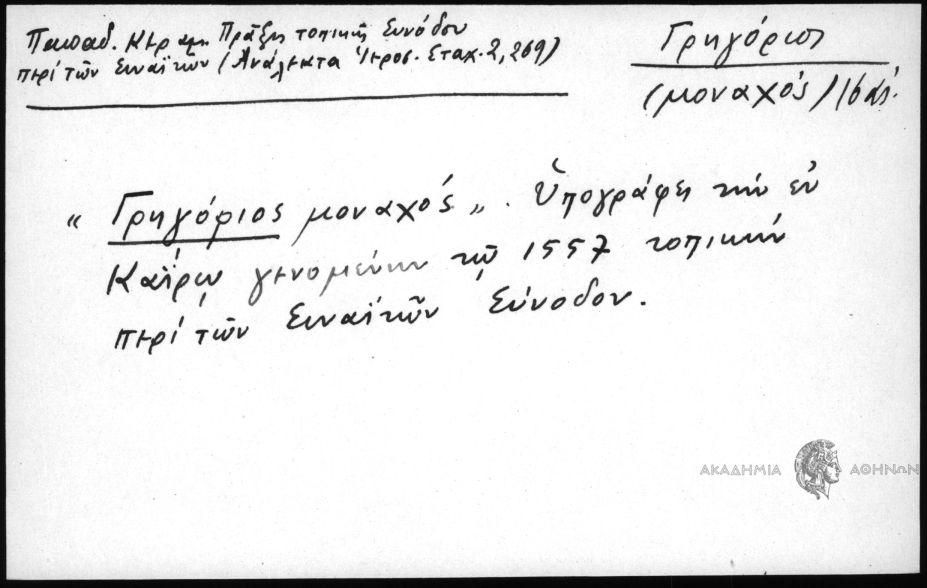 Παπαδ. Κεραμ. Πράξις τοπικῆς Συνόδου
περί τῶν Σιναϊτῶν (Ἀνάλεκτα Ἱεροσ. Σταχ. 2, 269)
Γρηγόριος
(μοναχός) 16 αἰ.
« Γρηγόριος μοναχός ». Ὑπογράφει τήν ἐν
Καΐρῳ γενομένην τῷ 1557 τοπικήν
περί τῶν Σιναϊτῶν Σύνοδον.
ΑΚΑΔΗΜΙΑ ΑΘΗΝΩΝ